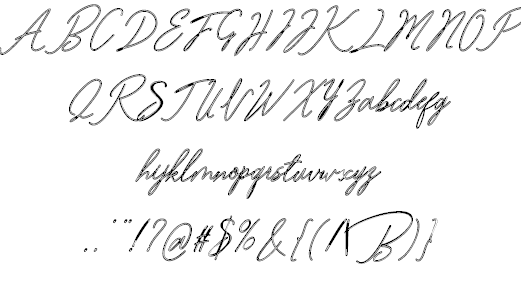 ABCDEFGHIJKLMNOP
QRSTUVWXYZabcdefg
hijklmnopqrstuvwxyz
..'"!?@#$%&{(/\B)}